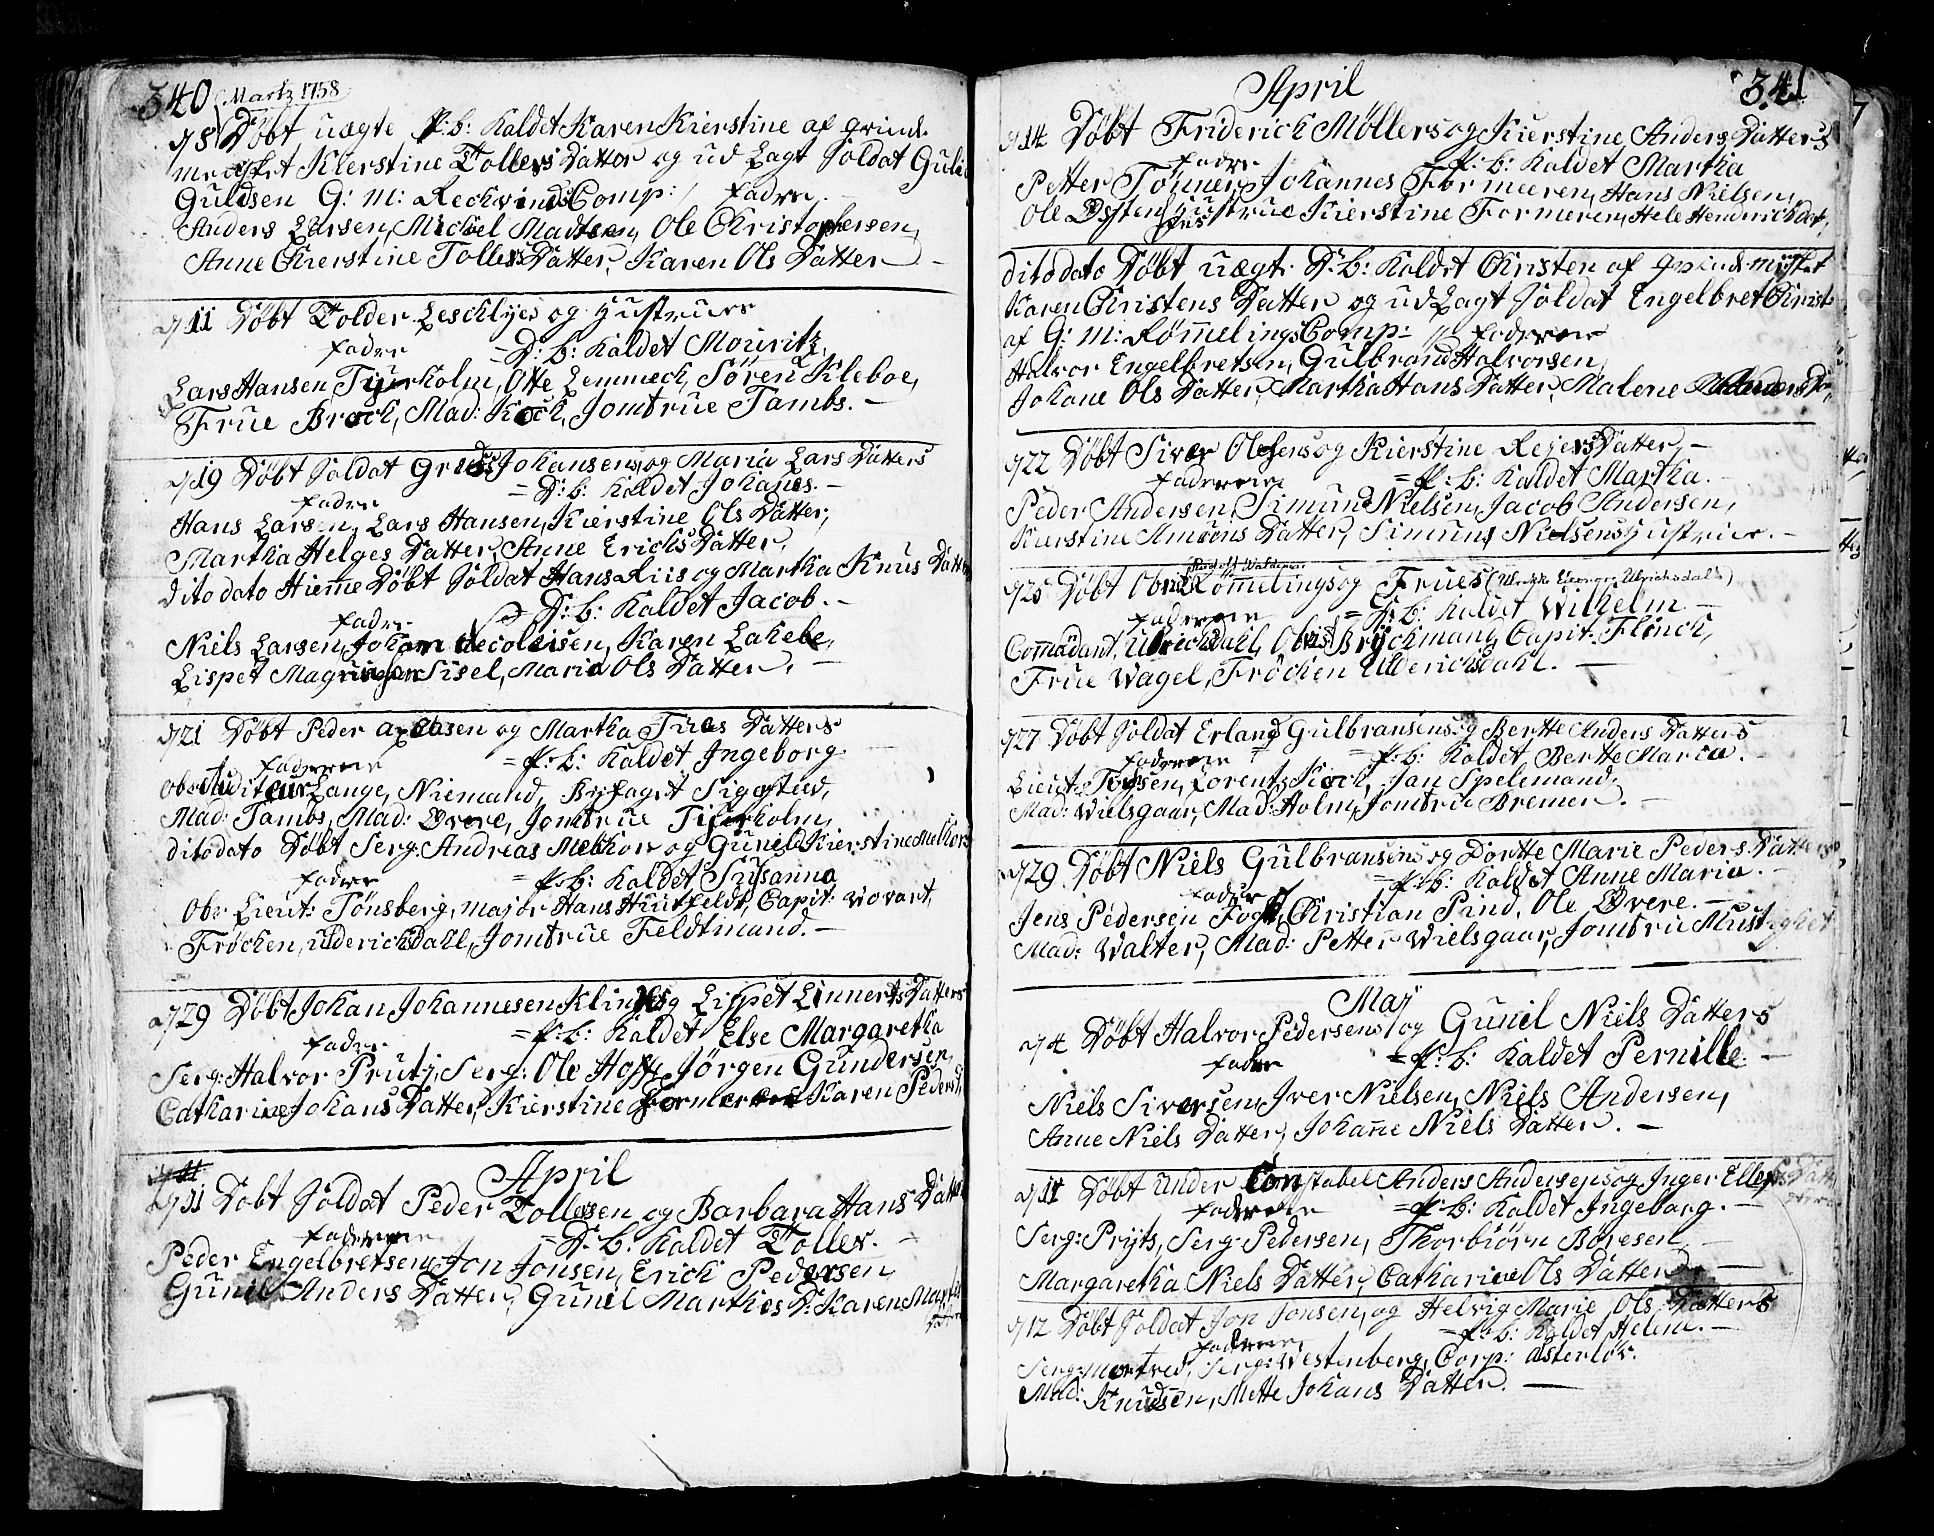 340 Martz 1758
d 5 Døbt uægte P: b: Kaldet Karen Kierstine af qvinde
mennisket Kierstine Tollers Datter og ud Lagt Soldat
Guldsen G: M: Reckvinds Comp: / Fadere
Anders Larsen, Michel Madtsen, Ole Christophersen,
Anne Chierstine Tollers Datter, Karen Ols Datter –
d 11 Døbt Tolder Leschlyes og Hustrues
Fadre = D: b: Kaldet Mouritz,
Lars Hansen Tyrholm, Otte Lemmech, Søren Kleboe,
Frue Brock, Mad: Koch, Jomfrue Tambs. –
d 19 Døbt Soldat Johansens og Maria Lars Datters
Fadre = D: b: Kaldet Johanes. –
Hans Larsen, Lars Hansen, Kierstine Ols Datter,
Martha Helges Datter, Anne Erichs Datter,
dito dato Hieme Døbt Soldat Hans Riis og Martha Knus Datter
Fadre D: b: Kaldet Jacob. –
Niels Larsen, Johan Necolaisen, Karen Lakebe,
Lispet Sisel, Maria Ols Datter. –
d 21 Døbt Peder og Martha Datters
Faderene = P: b: Kaldet Ingeborg
Lange, Niemand, Byfaget Sigested,
Mad: Tambs, Mad: Overe, Jomfrue Tyrholm,
dito dato Døbt Serg: Andreas Melkior og Gunild Kierstine Melkiors
Fadrer = P: b: Kaldet Susanna
Obr: Lieut: Tønsberg, Major Hans Huitfeldt, Capit: Wovart,
Frøcken, Uderichdahl, Jomfrue Feldtmand. –
d 29 Døbt Johan Johannesen og Lispet Linnerts Datters
Fadre = P: b: Kaldet Else Margaretha
Serg: Halvor Prutz, Serg: Ole Hoff, Jørgen Gundersen,
Catharine Johans Datter, Kierstine Karen Peders D
April
d 11 Døbt Soldat Peder Tollesen og Barbara Hans Datter
Faderene = D: b: Kaldet Toller. –
Peder Engelbretsen, Jon Jonsen, Erich Pedersen,
Gunil Anders Datter, Gunil Marthies D: Karen
Datter
April 341
d 14 Døbt Friderich Møllers og Kierstine Anders Datters
Fadre P: b: Kaldet Martha
Petter Tønner, Johannes Formeeren, Hans Nielsen,
Ole Hustrue Kierstine Formeren, Hele Henderichsdat,
dito dato Døbt uægte D: b: Kaldet Christen af qvindemisket
Karen Christens Datter og ud Lagt Soldat Engelbret Christ
af G: M: Rømelings Comp: // Faderene
Halvor Engelbretsen, Gulbrand Halvorsen,
Johane Ols Datter, Martha Hans Datter, Malene Anders D
d 22 Døbt Siver Olesens og Kierstine Rejers Datter –
Faderene = P: b: Kaldet Martha. –
Peder Andersen, Simun Nielsen, Jacob Andersen,
Kierstine Amuns Datter, Simuns Nielsens Hustrue. –
d 25 Døbt Rømelings og Frues
Faderene = D: b: Kaldet Wilhelm –
Comadant, Ulrichdahl, Capit: Flinch,
Frue Wagel, Frøcken Ulderichsdahl. –
d 27 Døbt Soldat Erland Gulbransens og Berthe Anders Datters
Faderene = P: b: Kaldet, Berthe Maria. –
Lieut: Lorentz Koch, Jan Spelemand,
Mad: Wielsgaar, Mad: Holm, Jomfrue Bremer. –
d 29 Døbt Niels Gulbransens og Dorthe Marie Peders Datters
Fadre = P: b: Kaldet Anne Maria. –
Jens Pedersen Fogt, Christian Pind, Ole Overe. –
Mad: Walter, Mad: Petter Wielsgaar, Jomfrue
Maj
d 4 Døbt Halvor Pedersens og Gunil Niels Datters
Fadre = P: b: Kaldet Pernille. –
Niels Siversen, Iver Nielsen, Niels Andersen,
Anne Niels Datter, Johanne Niels Datter. –
d 11 Døbt under Constabel Anders Andersens og Inger Ellefs Datt
Faderene = P: b: Kaldet Ingeborg. –
Serg: Pryts, Serg: Pedersen, Thorbiørn Boresen –
Margaretha Niels Datter, Catharine Ols Datter –
d 12 Døbt Soldat Jon Jonsen, og Helvig Marie Ols Datters
Faderene = P: b: Kaldet Helene. –
Serg: Serg: Westenberg, Corp: Østerløv.
Mad: Knudsen, Mette Johans Datter. –